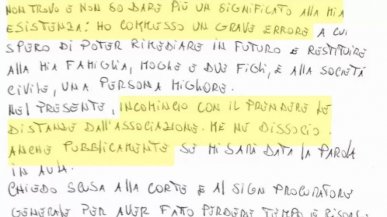 NON TROVO E NON SO DARE PIÙ UN SIGNIFICATO ALLA MIA
ESISTENZA: HO COMMESSO UN GRAVE ERRORE A CUI
SPERO DI POTER RIMEDIARE IN FUTURO E RESTITUIRE
ALLA MIA FAMIGLIA, MOGLIE E DUE FIGLI, E ALLA SOCIETÀ
CIVILE, UNA PERSONA MIGLIORE.
NEL PRESENTE, INCOMINCIO CON IL PRENDERE LE
DISTANZE DALL'ASSOCIAZIONE. ME NE DISSOCIO
ANCHE PUBBLICAMENTE SE MI SARÀ DATA LA PAROLA
IN AULA.
CHIEDO SCUSA ALLA CORTE E AL SIGN PROCURATORE
GENERALE PER AVER FATTO PERDERE TEMPO E